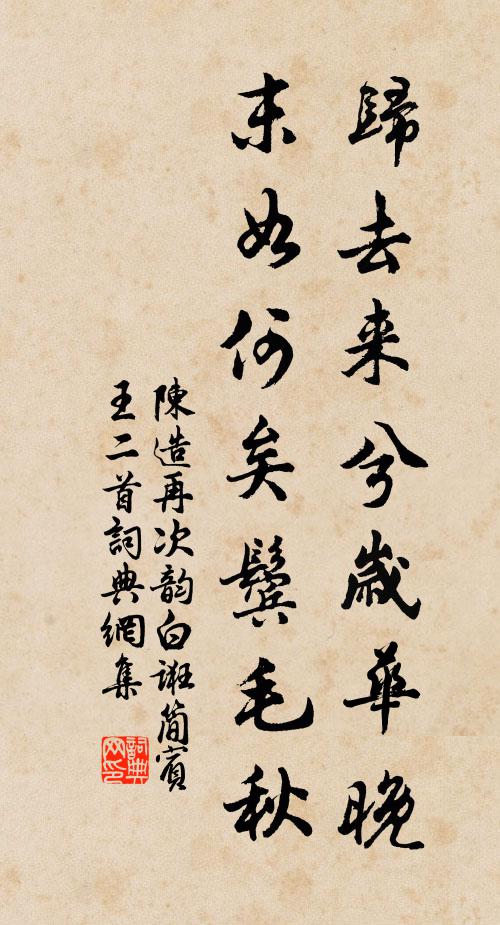 歸去来兮歲華晚
末如何矣鬓毛秋
陳造再次韵白斑简賓
王二首詞典網集
詞典网印